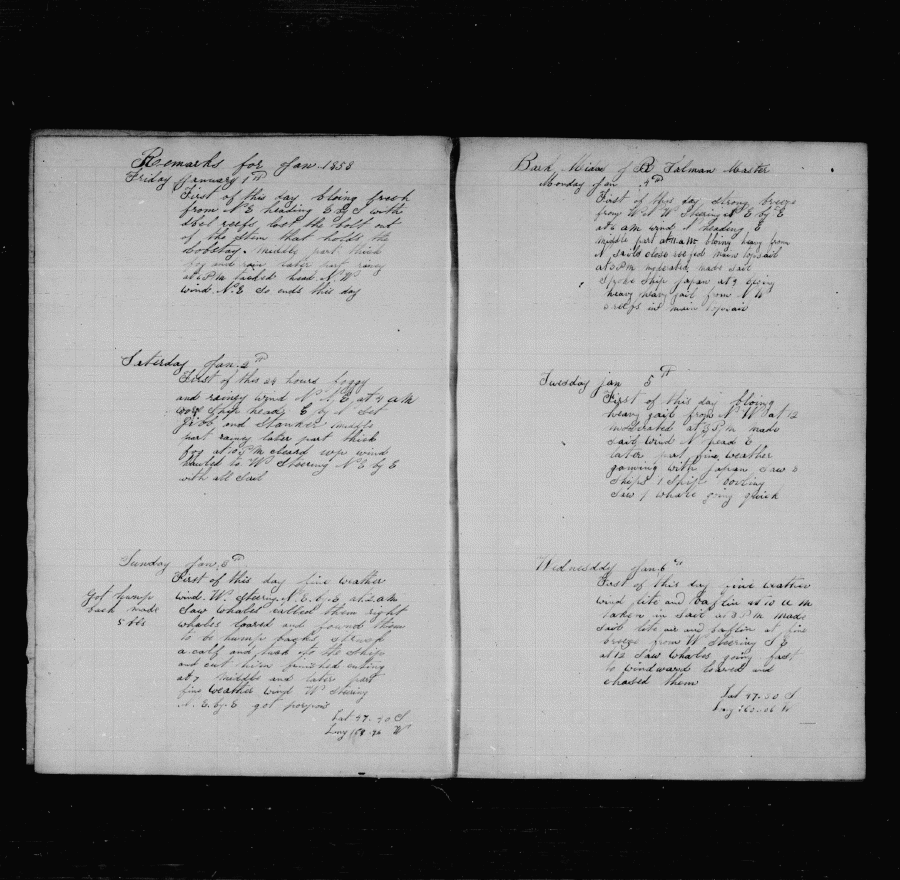 Remarks for Jan. 1858
Friday January 1st
First of this day bloing fresh
from N E heading E by S with
dbel reefs lost the bolt out
of the stem that holds the
bobstay. middle part thick
fog and rain later part rainy
at 6 PM tacked head N W
wind N.E So ends this day
Saterday Jan. 2
First of this 24 hours foggy
and rainey wind N N E, at 4 a m
ship heads E by N Set
jibb and Spanker middle
part rainey later part thick
fog at 10 PM cleard up wind
hauled to W Steering N E by E
with all Sail
Sunday Jan. 3
Got hump
back made
5 bls
First of this day fine weather
wind W. Steering N. E. by E, at 2 a m
Saw whales called them right
whales loared and found them
to be hump backs, struck
a calf and took to the Ship
and cut him finished cuting
at 7 middle and later part
fine weather wind W Steering
N. E. by E got porpois
Lat 47. S
Long W
Bark of Talman Master
Monday Jan 4
First of this day strong breeze
from W N W Steering N E by E
at 6 a m wind N heading E
middle part at 11 a m bloing heavy from
N Sails close reefed main topsail
at 3 P M moderated made Sail
Spoke Ship Japan at 9 bloing
heavy heavy gail from N W
reefs in main topsail
Tuesday jan 5th
First of this day bloing
heavy gail from N W at 12
moderated at 3 P M made
Sail wind N head E
later part fine weather
gamming with Japan Saw 3
Ships 1 Ship boiling
Saw 1 whale going quick
Wednesday Jan 6
First of this day fine weather
wind lite and bafflin at 10 a m
taken in Sail at 3 P M made
Sail lite air and bafflin at fine
breeze from W Steering S E
at 12 Saw whales going fast
to windward loared and
chased them
Lat 47.30 S
Long W